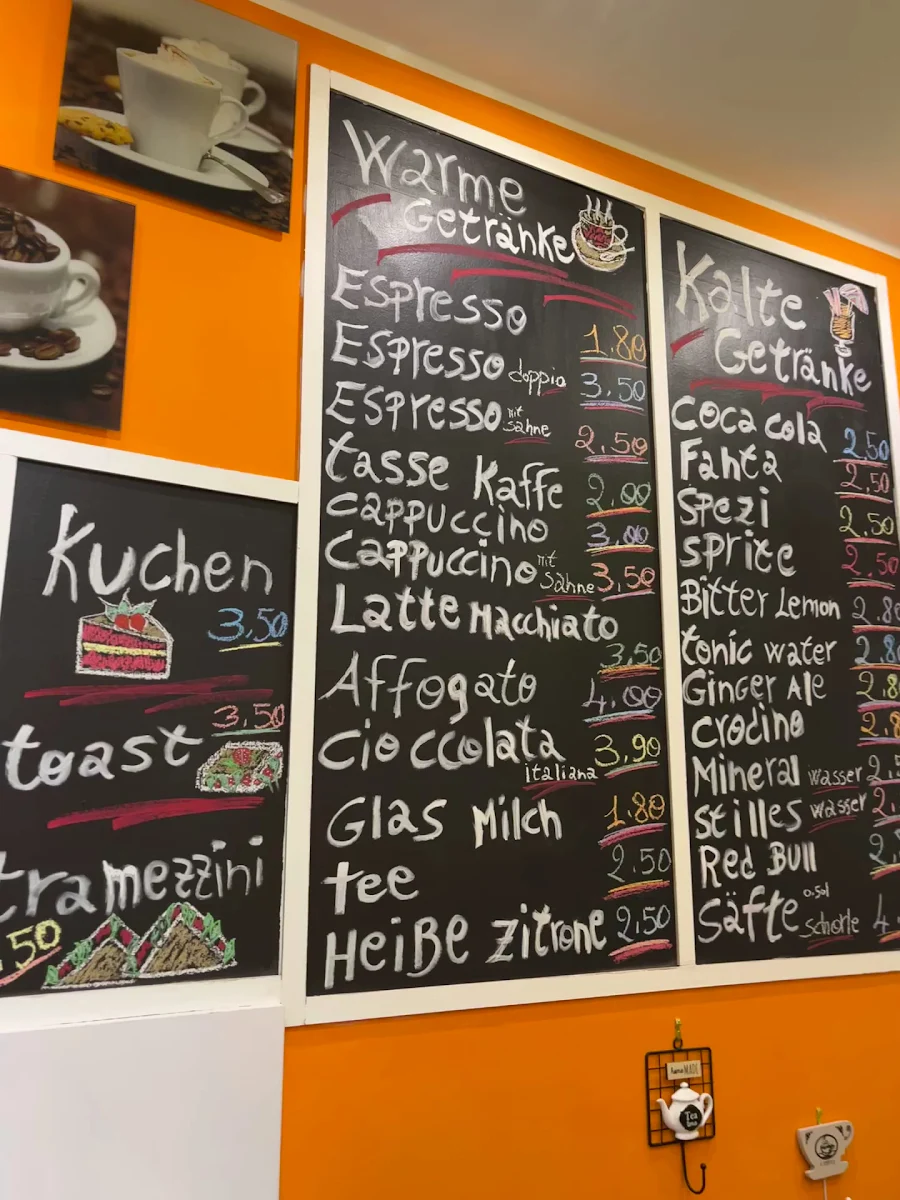 Kuchen
3,50
toast 3,50
tramezzini
.50
Warme
Getränke
Espresso 1.80
Espresso doppio 3,50
Espresso mit sahne 2,50
tasse Kaffe 2,00
cappuccino 3,00
Cappuccino mit Sahne 3,50
Latte Macchiato 3,50
Affogato 4,00
Cioccolata italiana 3,90
Glas Milch 1.80
tee 2.50
Heiße zitrone 2,50
Kalte
Getränke
coca cola 2.50
Fanta 2.50
Spezi 2.50
sprite 2.50
Bitter Lemon 2.80
tonic water 2.80
Ginger Ale 2.8
Crodino 2.8
Mineral wasser 2,5
stilles wasser 2,
Red Bull 2,
Säfte schorle 4,
Home MADE
Tea